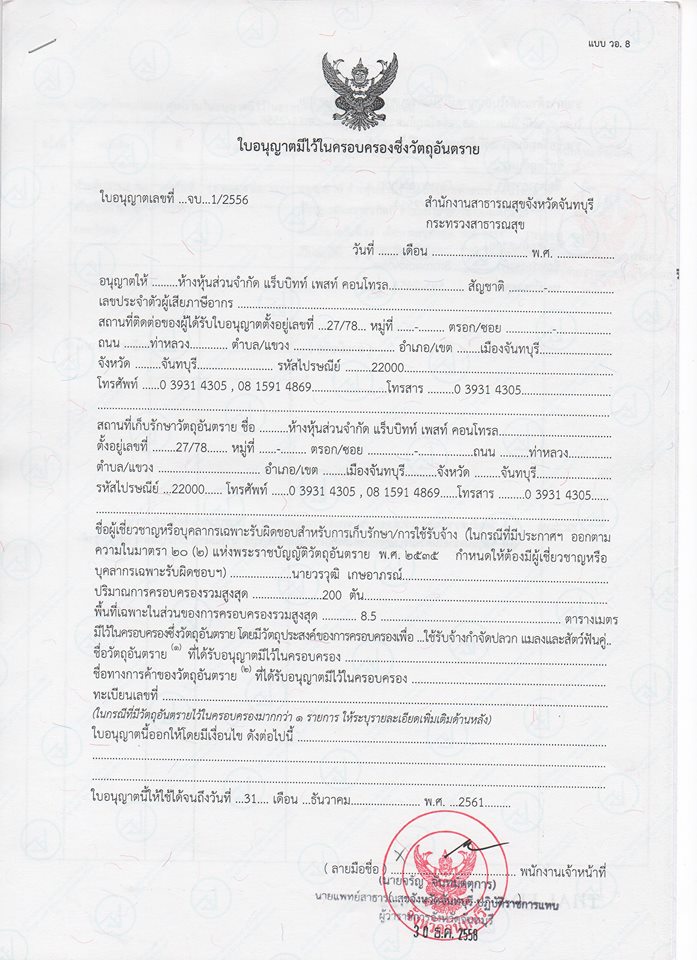 แบบ วอ. 8
ใบอนุญาตมีไว้ในครอบครองซึ่งวัตถุอันตราย
ใบอนุญาตเลขที่ ...จบ...1/2556
สำนักงานสาธารณสุขจังหวัดจันทบุรี
กระทรวงสาธารณสุข
วันที่ ....... เดือน ............................. พ.ศ. .................
อนุญาตให้ .........ห้างหุ้นส่วนจำกัด แร็บบิทท์ เพสท์ คอนโทรล....................... สัญชาติ ...........-..................
เลขประจำตัวผู้เสียภาษีอากร ................................................................
สถานที่ติดต่อของผู้ได้รับใบอนุญาตตั้งอยู่เลขที่ ...27/78... หมู่ที่ ......-........ ตรอก/ซอย ..............-................
ถนน .........ท่าหลวง............ ตำบล/แขวง ................................ อำเภอ/เขต .......เมืองจันทบุรี.....................
จังหวัด .........จันทบุรี...................... รหัสไปรษณีย์ ........22000........................
โทรศัพท์ ......0 3931 4305 , 08 1591 4869.......................โทรสาร .........0 3931 4305..........................
สถานที่เก็บรักษาวัตถุอันตราย ชื่อ .........ห้างหุ้นส่วนจำกัด แร็บบิทท์ เพสท์ คอนโทรล..................................
ตั้งอยู่เลขที่ ........27/78....... หมู่ที่ ......-......... ตรอก/ซอย ...............-.................ถนน .........ท่าหลวง............
ตำบล/แขวง ............................... อำเภอ/เขต .......เมืองจันทบุรี..........จังหวัด ........จันทบุรี......................
รหัสไปรษณีย์ ...22000...... โทรศัพท์ ......0 3931 4305 , 08 1591 4869......โทรสาร ........0 3931 4305......
ชื่อผู้เชี่ยวชาญหรือบุคลากรเฉพาะรับผิดชอบสำหรับการเก็บรักษา/การใช้รับจ้าง (ในกรณีที่มีประกาศฯ ออกตาม
ความในมาตรา ๒๐ (๒) แห่งพระราชบัญญัติวัตถุอันตราย พ.ศ. ๒๕๓๕ กำหนดให้ต้องมีผู้เชี่ยวชาญหรือ
บุคลากรเฉพาะรับผิดชอบฯ) ...................นายวรวุฒิ เกษอาภรณ์...............................................................
ปริมาณการครอบครองรวมสูงสุด .....................200 ตัน.........................................................................
พื้นที่เฉพาะในส่วนของการครอบครองรวมสูงสุด ........... 8.5 ....................................................... ตารางเมตร
มีไว้ในครอบครองซึ่งวัตถุอันตราย โดยมีวัตถุประสงค์ของการครอบครองเพื่อ ...ใช้รับจ้างกำจัดปลวก แมลงและสัตว์ฟันคู่..
ชื่อวัตถุอันตราย (๑) ที่ได้รับอนุญาตมีไว้ในครอบครอง ................................................................
ชื่อทางการค้าของวัตถุอันตราย (๒) ที่ได้รับอนุญาตมีไว้ในครอบครอง ................................................
ทะเบียนเลขที่ ................................................................
(ในกรณีที่มีวัตถุอันตรายไว้ในครอบครองมากกว่า ๑ รายการ ให้ระบุรายละเอียดเพิ่มเติมด้านหลัง)
ใบอนุญาตนี้ออกให้โดยมีเงื่อนไข ดังต่อไปนี้ ................................................................
ใบอนุญาตนี้ให้ใช้ได้จนถึงวันที่ ...31.... เดือน ...ธันวาคม..................... พ.ศ. ...2561........
( ลายมือชื่อ ) ...................................... พนักงานเจ้าหน้าที่
นายแพทย์สาธารณสุขจังหวัดจันทบุรี ปฏิบัติราชการแทน
ผู้ว่าราชการจังหวัดจันทบุรี
30 ธ.ค. 2558